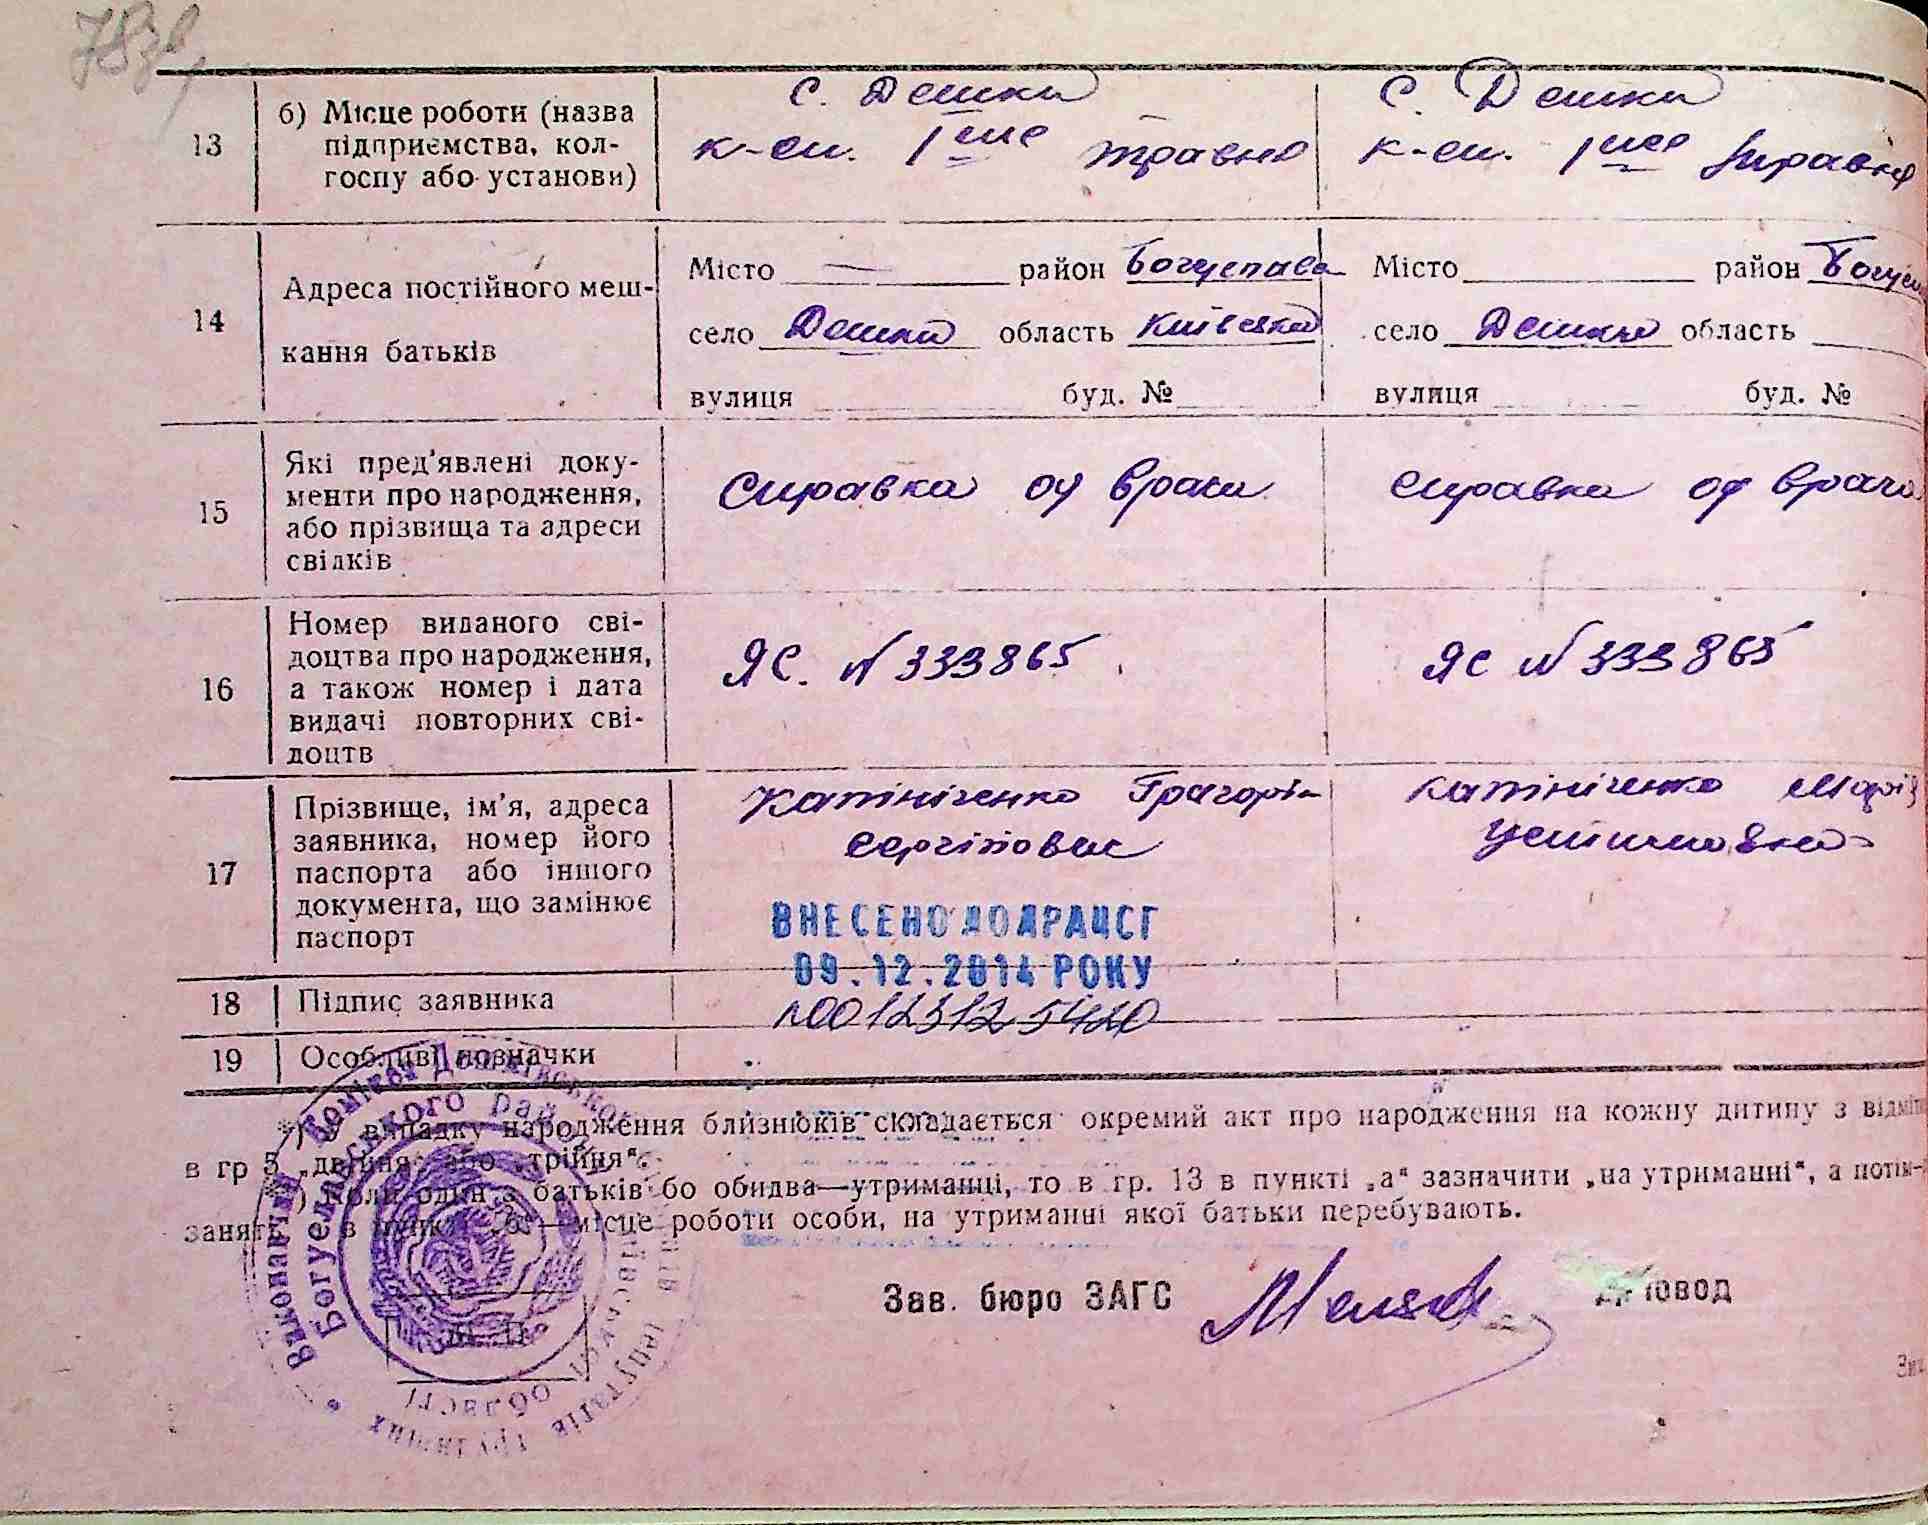 78
13
б) Місце роботи (назва
підприємства, кол-
госпу або установи)
с. Дешки
к-сп. 1ше травня
с. Дешки
к-сп. 1ше травня
14
Адреса постійного меш-
кання батьків
Місто — район Богуслав
село Дешки область Київська
вулиця буд. №
Місто район Богус
село Дешки область
вулиця буд. №
15
Які пред'явлені доку-
менти про народження,
або прізвища та адреси
свідків
Справка од врача
Справка од врача
16
Номер виданого сві-
доцтва про народження,
а також номер і дата
видачі повторних сві-
доцтв
ЯС. N 333865
ЯС N 333865
17
Прізвище, ім'я, адреса
заявника, номер його
паспорта або іншого
документа, що замінює
паспорт
Григорій
Сергійович
Марія
ВНЕСЕНО ДО ДРАЦСГ
09.12.2014 РОКУ
18 Підпис заявника
00123125420
19 Особливі позначки
*) У випадку народження близнюків складається окремий акт про народження на кожну дитину з відмі
в гр 5 „двійня“ або „трійня“.
) Коли один з батьків бо обидва—утриманці, то в гр. 13 в пункті „а“ зазначити „на утриманні“, а потім
занят в пункт „б“—місце роботи особи, на утриманні якої батьки перебувають.
Зав. бюро ЗАГС
Діловод
М. П.
Виконавчий Комітет Дешківської
депутатів трудящих
Богуславського району
Київської області